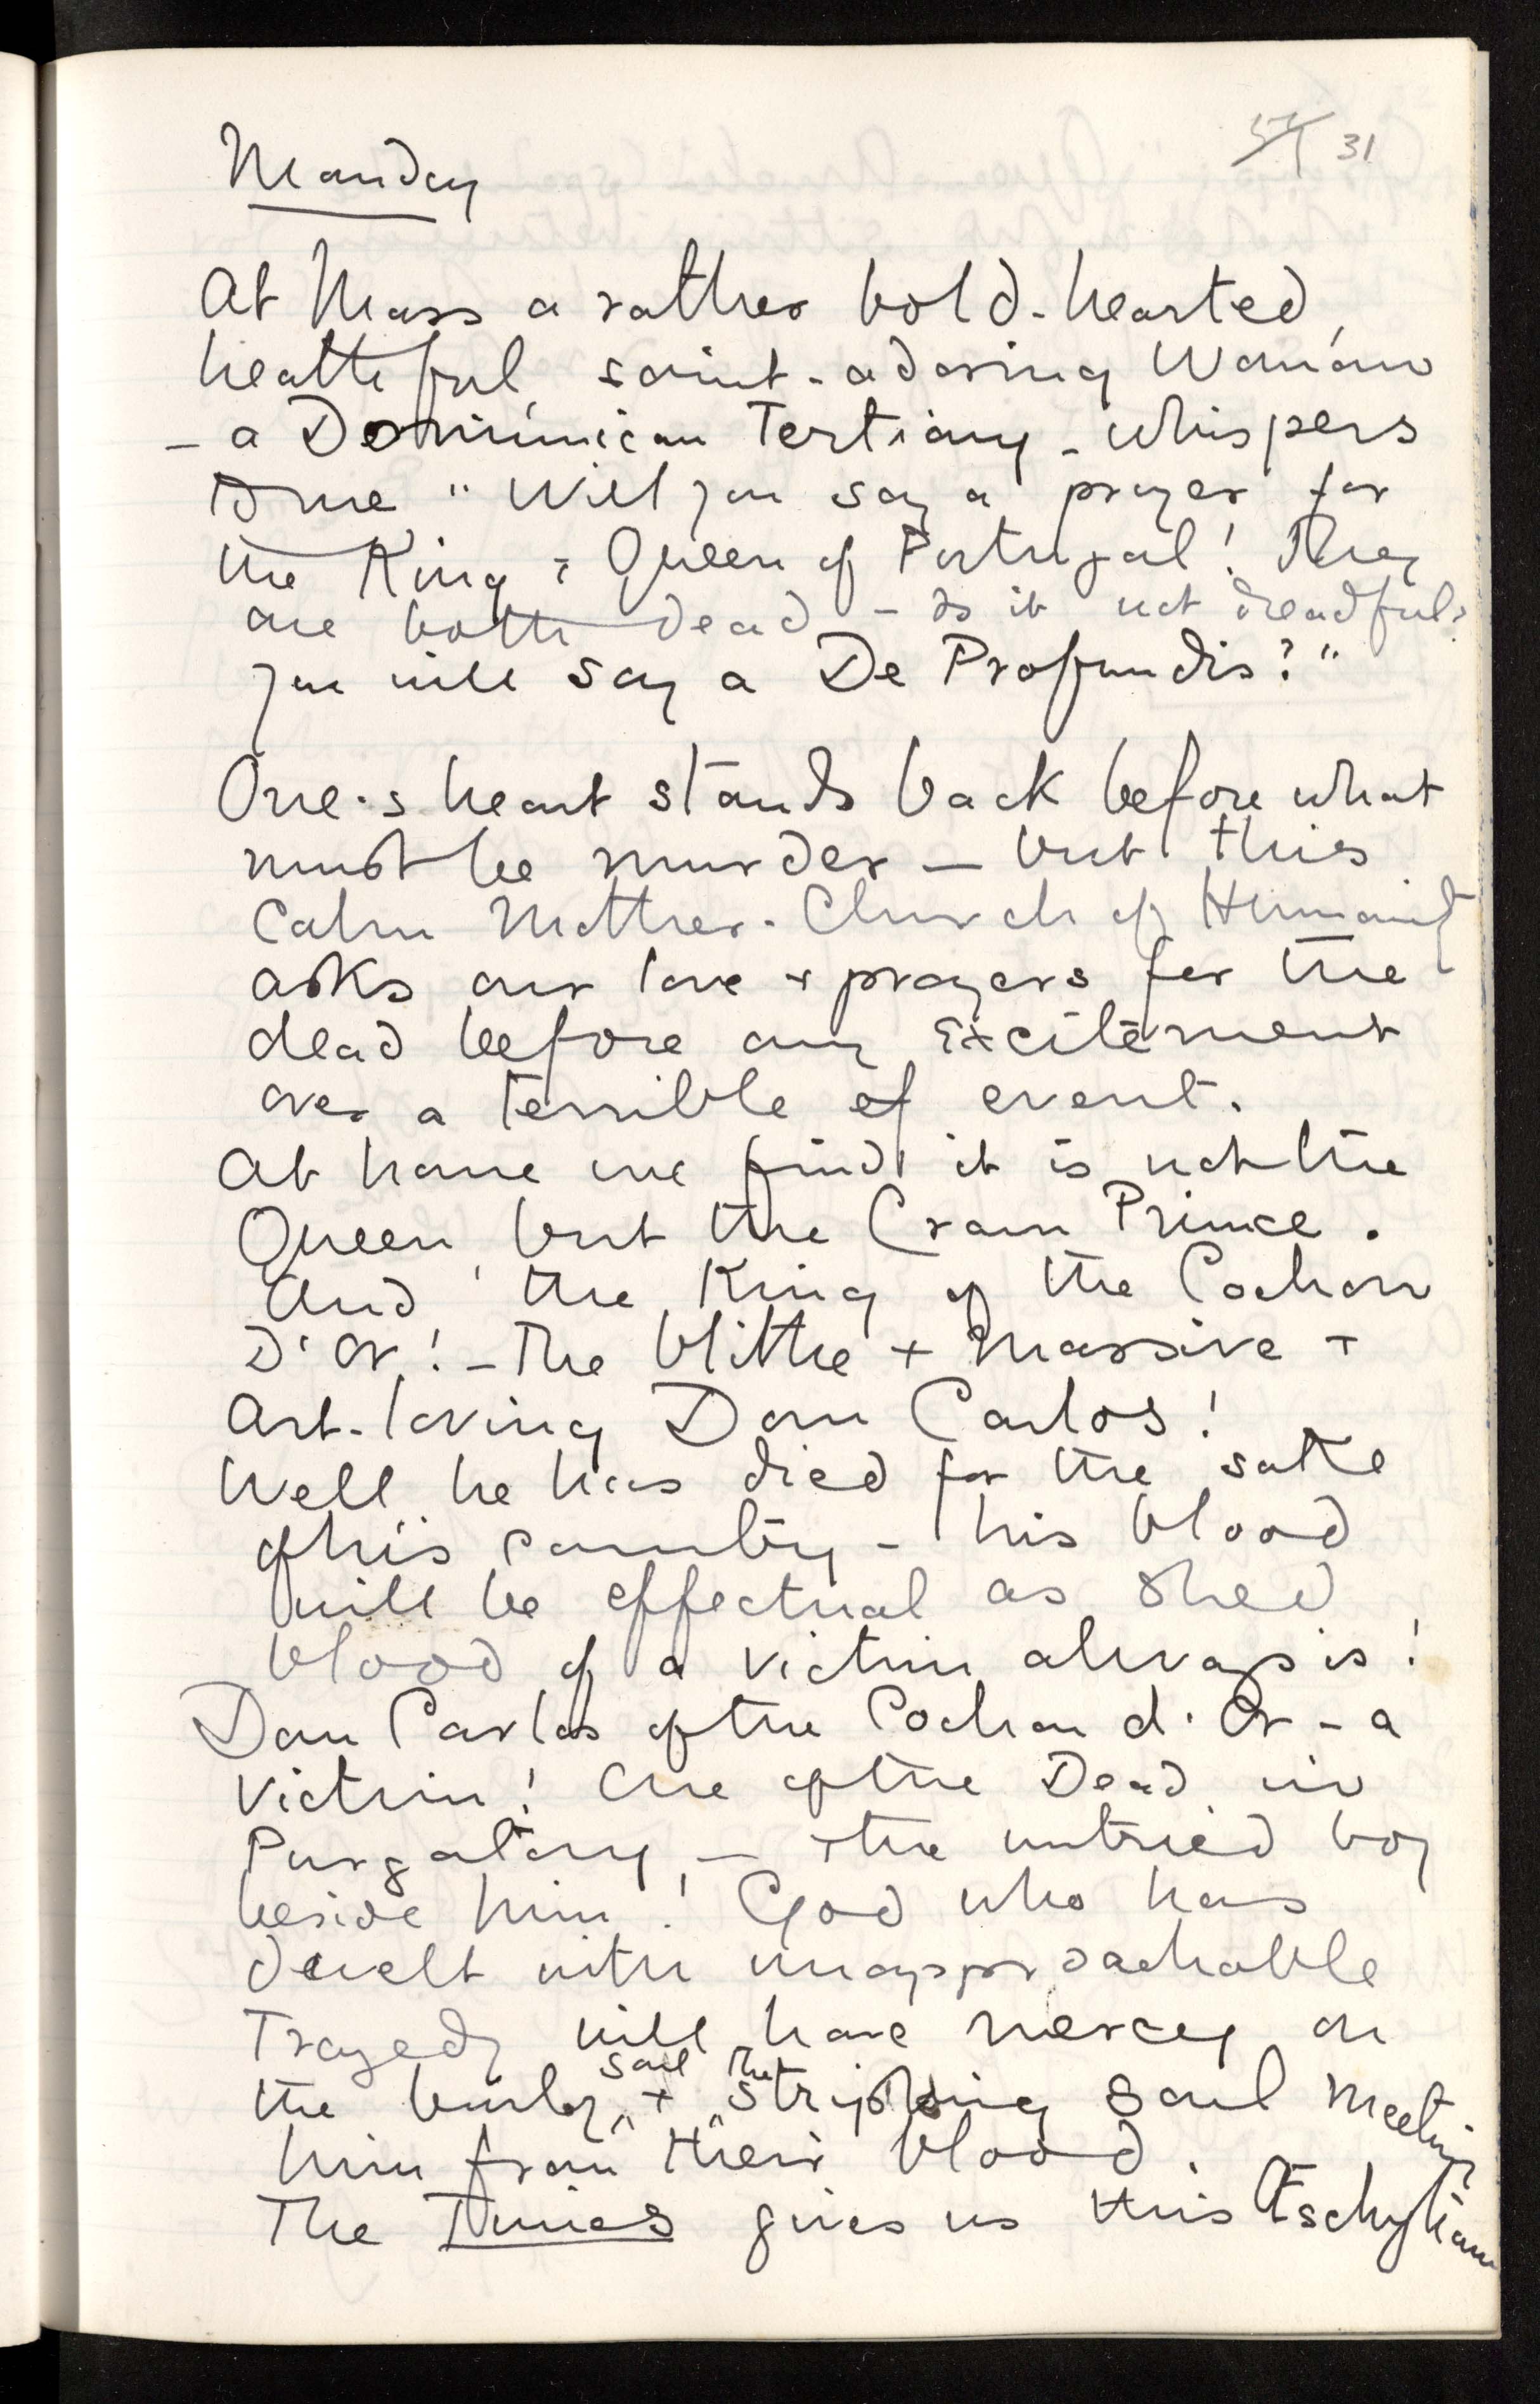 31
Monday
At Mass a rather bold-hearted,
healthful, saint-adoring Woman
- a Dominican Tertiary - whispers
to me "Will you say a prayer for
the King & Queen of Portugal! They
are both dead - Is it not dreadful?
you will say a De Profundis?"
One's heart stands back before what
must be murder - but this
Calm Mother-Church of Humanity
asks our love + prayers for the
dead before any Excitement
over a terrible of event.
At home we find it is not the
Queen, but the Crown Prince.
And the King of the Cochon
D'Or! - The blithe + massive +
Art-loving Dom Carlos!
Well he has died for the sake
of his country - his blood
will be effectual as shed
blood of a victim always is!
Dom Carlos of the Cochon d'Or - a
Victim! One of the Dead in
Purgatory - + the untried boy
beside him! God who has
dwelt with unapproachable
Tragedy will have mercy on
soul The
the burly + stripling soul meeting
him from their blood.
The Times gives us this Æschylian